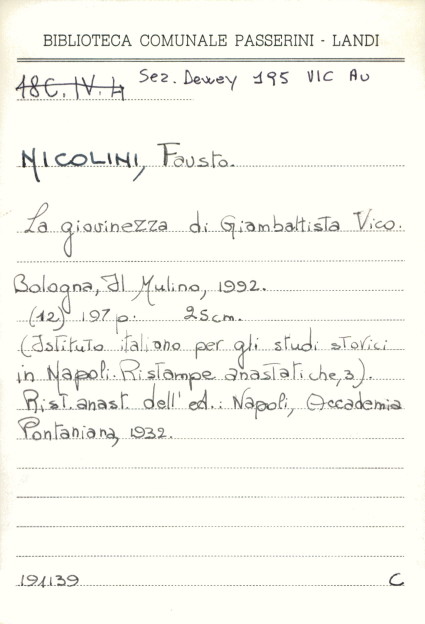 BIBLIOTECA COMUNALE PASSERINI - LANDI
18C.IV.4 Sez. Dewey 195 VIC Au
NICOLINI, Fausto.
La giovinezza di Giambattista Vico.
Bologna, Il Mulino, 1992.
(12) 197 p. 25cm.
(Istituto italiano per gli studi storici
in Napoli. Ristampe anastatiche, 3).
Rist. anast. dell'ed.: Napoli, Accademia
Pontaniana, 1932.
191139 C